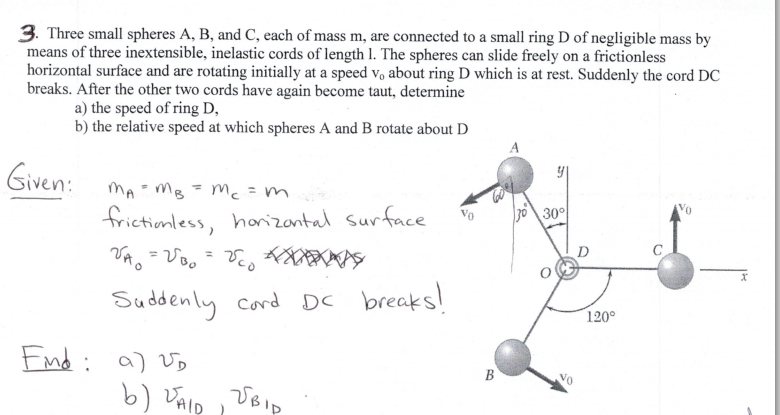 3. Three small spheres A, B, and C, each of mass m, are connected to a small ring D of negligible mass by
means of three inextensible, inelastic cords of length l. The spheres can slide freely on a frictionless
horizontal surface and are rotating initially at a speed v₀ about ring D which is at rest. Suddenly the cord DC
breaks. After the other two cords have again become taut, determine
a) the speed of ring D,
b) the relative speed at which spheres A and B rotate about D
Given:
m_A = m_B = m_C = m
frictionless, horizontal surface
v_A₀ = v_B₀ = v_C₀
Suddenly cord DC breaks!
Find: a) v_D
b) v_A/D , v_B/D
A
y
60°
v₀
30°
30°
v₀
D
C
O
x
120°
B
v₀